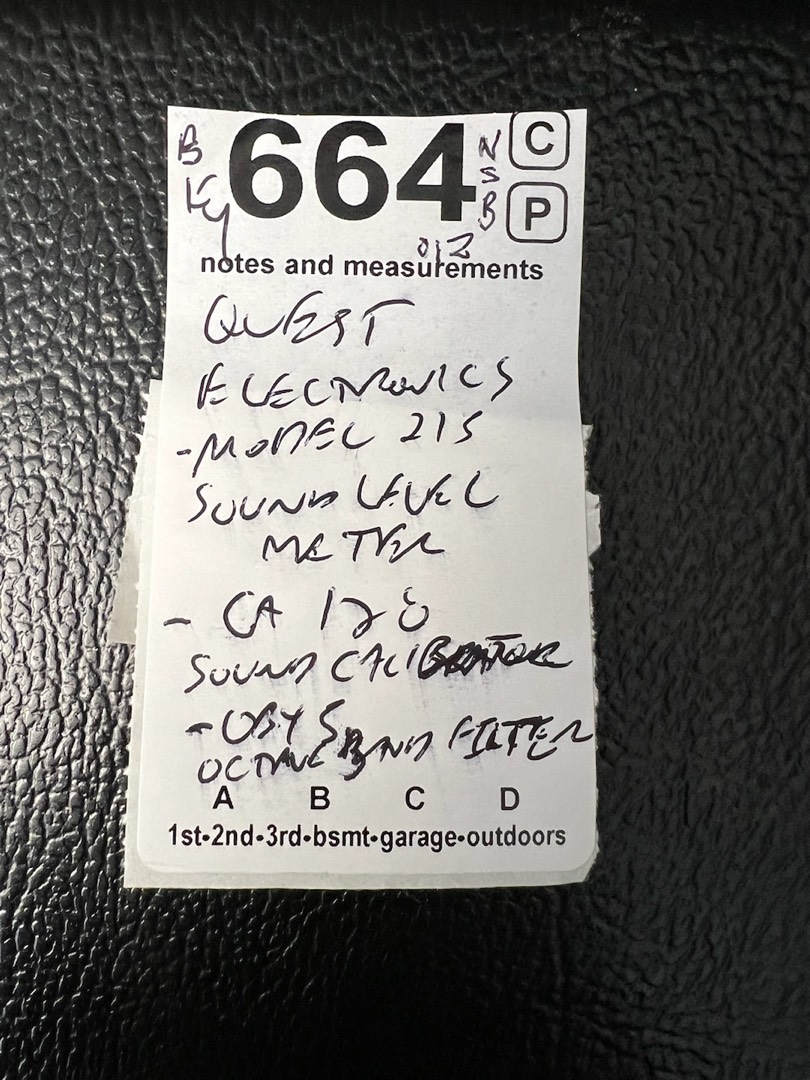 B 664 N C
S
B P
notes and measurements
QUEST
ELECTRONICS
-MODEL 215
SOUND LEVEL
METER
- CA 12B
SOUND CALIBRATOR
-OB45
OCTAVE BAND FILTER
A B C D
1st•2nd•3rd•bsmt•garage•outdoors